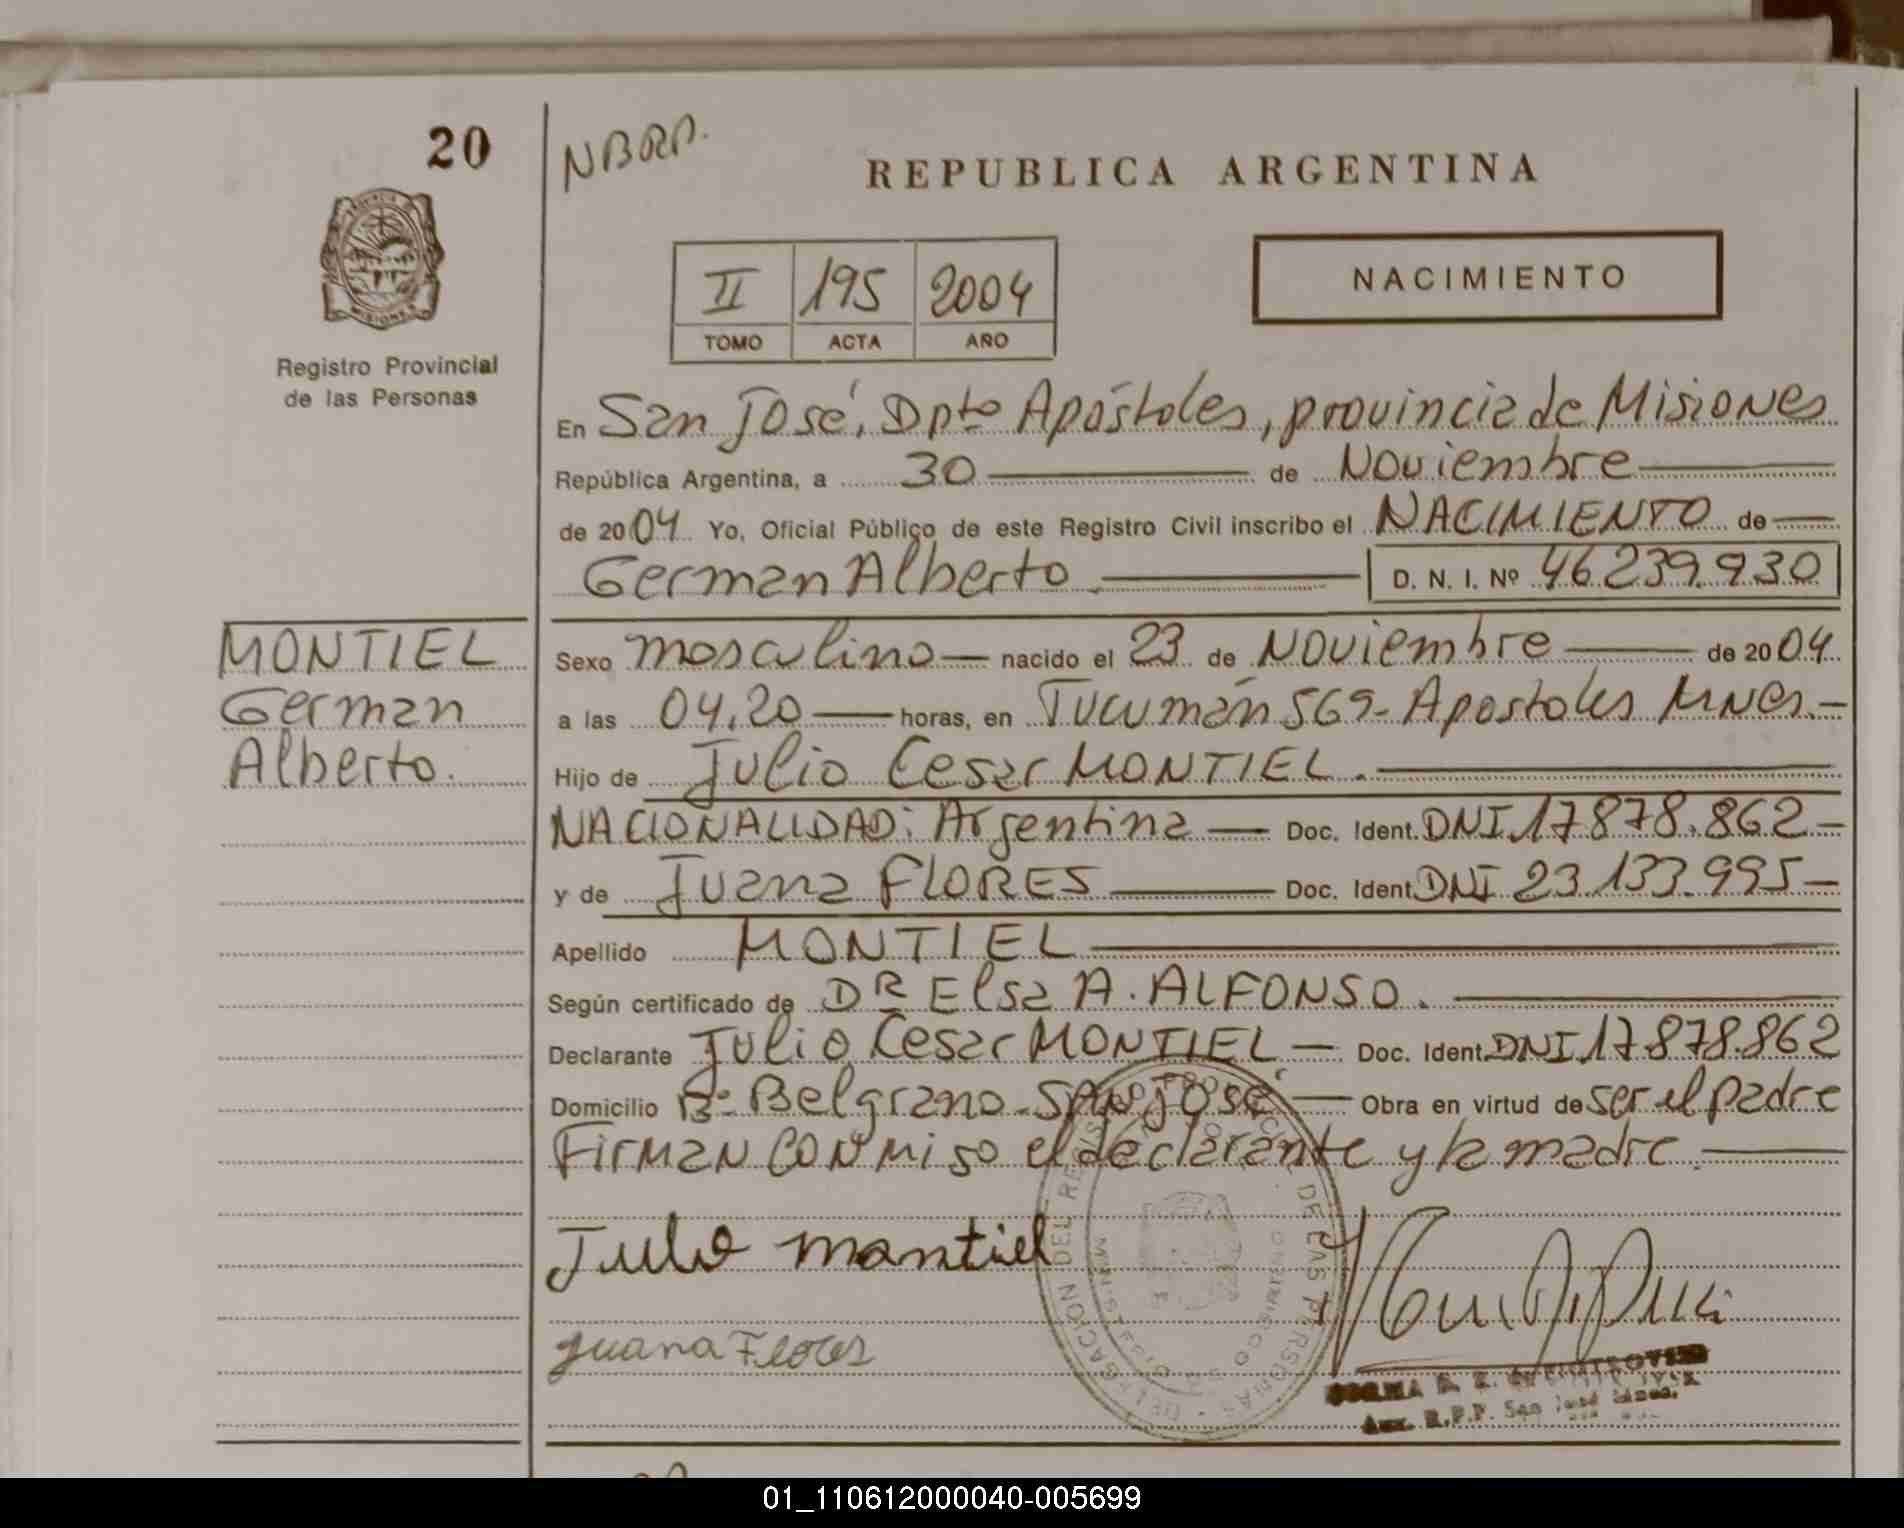 20
NBRA.
REPUBLICA ARGENTINA
II 195 2004
TOMO ACTA AÑO
NACIMIENTO
Registro Provincial
de las Personas
En San José, Dpto Apóstoles, provincia de Misiones
República Argentina, a 30 de Noviembre
de 2004 Yo, Oficial Público de este Registro Civil inscribo el NACIMIENTO de
German Alberto D. N. I. Nº 46.239.930
MONTIEL
German
Alberto.
Sexo masculino nacido el 23 de Noviembre de 2004
a las 04.20 horas, en Tucumán 569- Apostoles MNes.-
Hijo de Julio Cesar MONTIEL.
NACIONALIDAD: Argentina Doc. Ident. DNI 17.878.862
y de Juana FLORES Doc. Ident. DNI 23.133.995
Apellido MONTIEL
Según certificado de DR Elsa A. ALFONSO.
Declarante Julio Cesar MONTIEL Doc. Ident. DNI 17.878.862
Domicilio Bº Belgrano - San José Obra en virtud de ser el padre
Firman conmigo el declarante y la madre.
Julio montiel
Juana Flores
DELEGACION DEL REGISTRO PROVINCIAL DE LAS PERSONAS
MISIONES
Aux. R.P.P. San José Mnes.
01_110612000040-005699